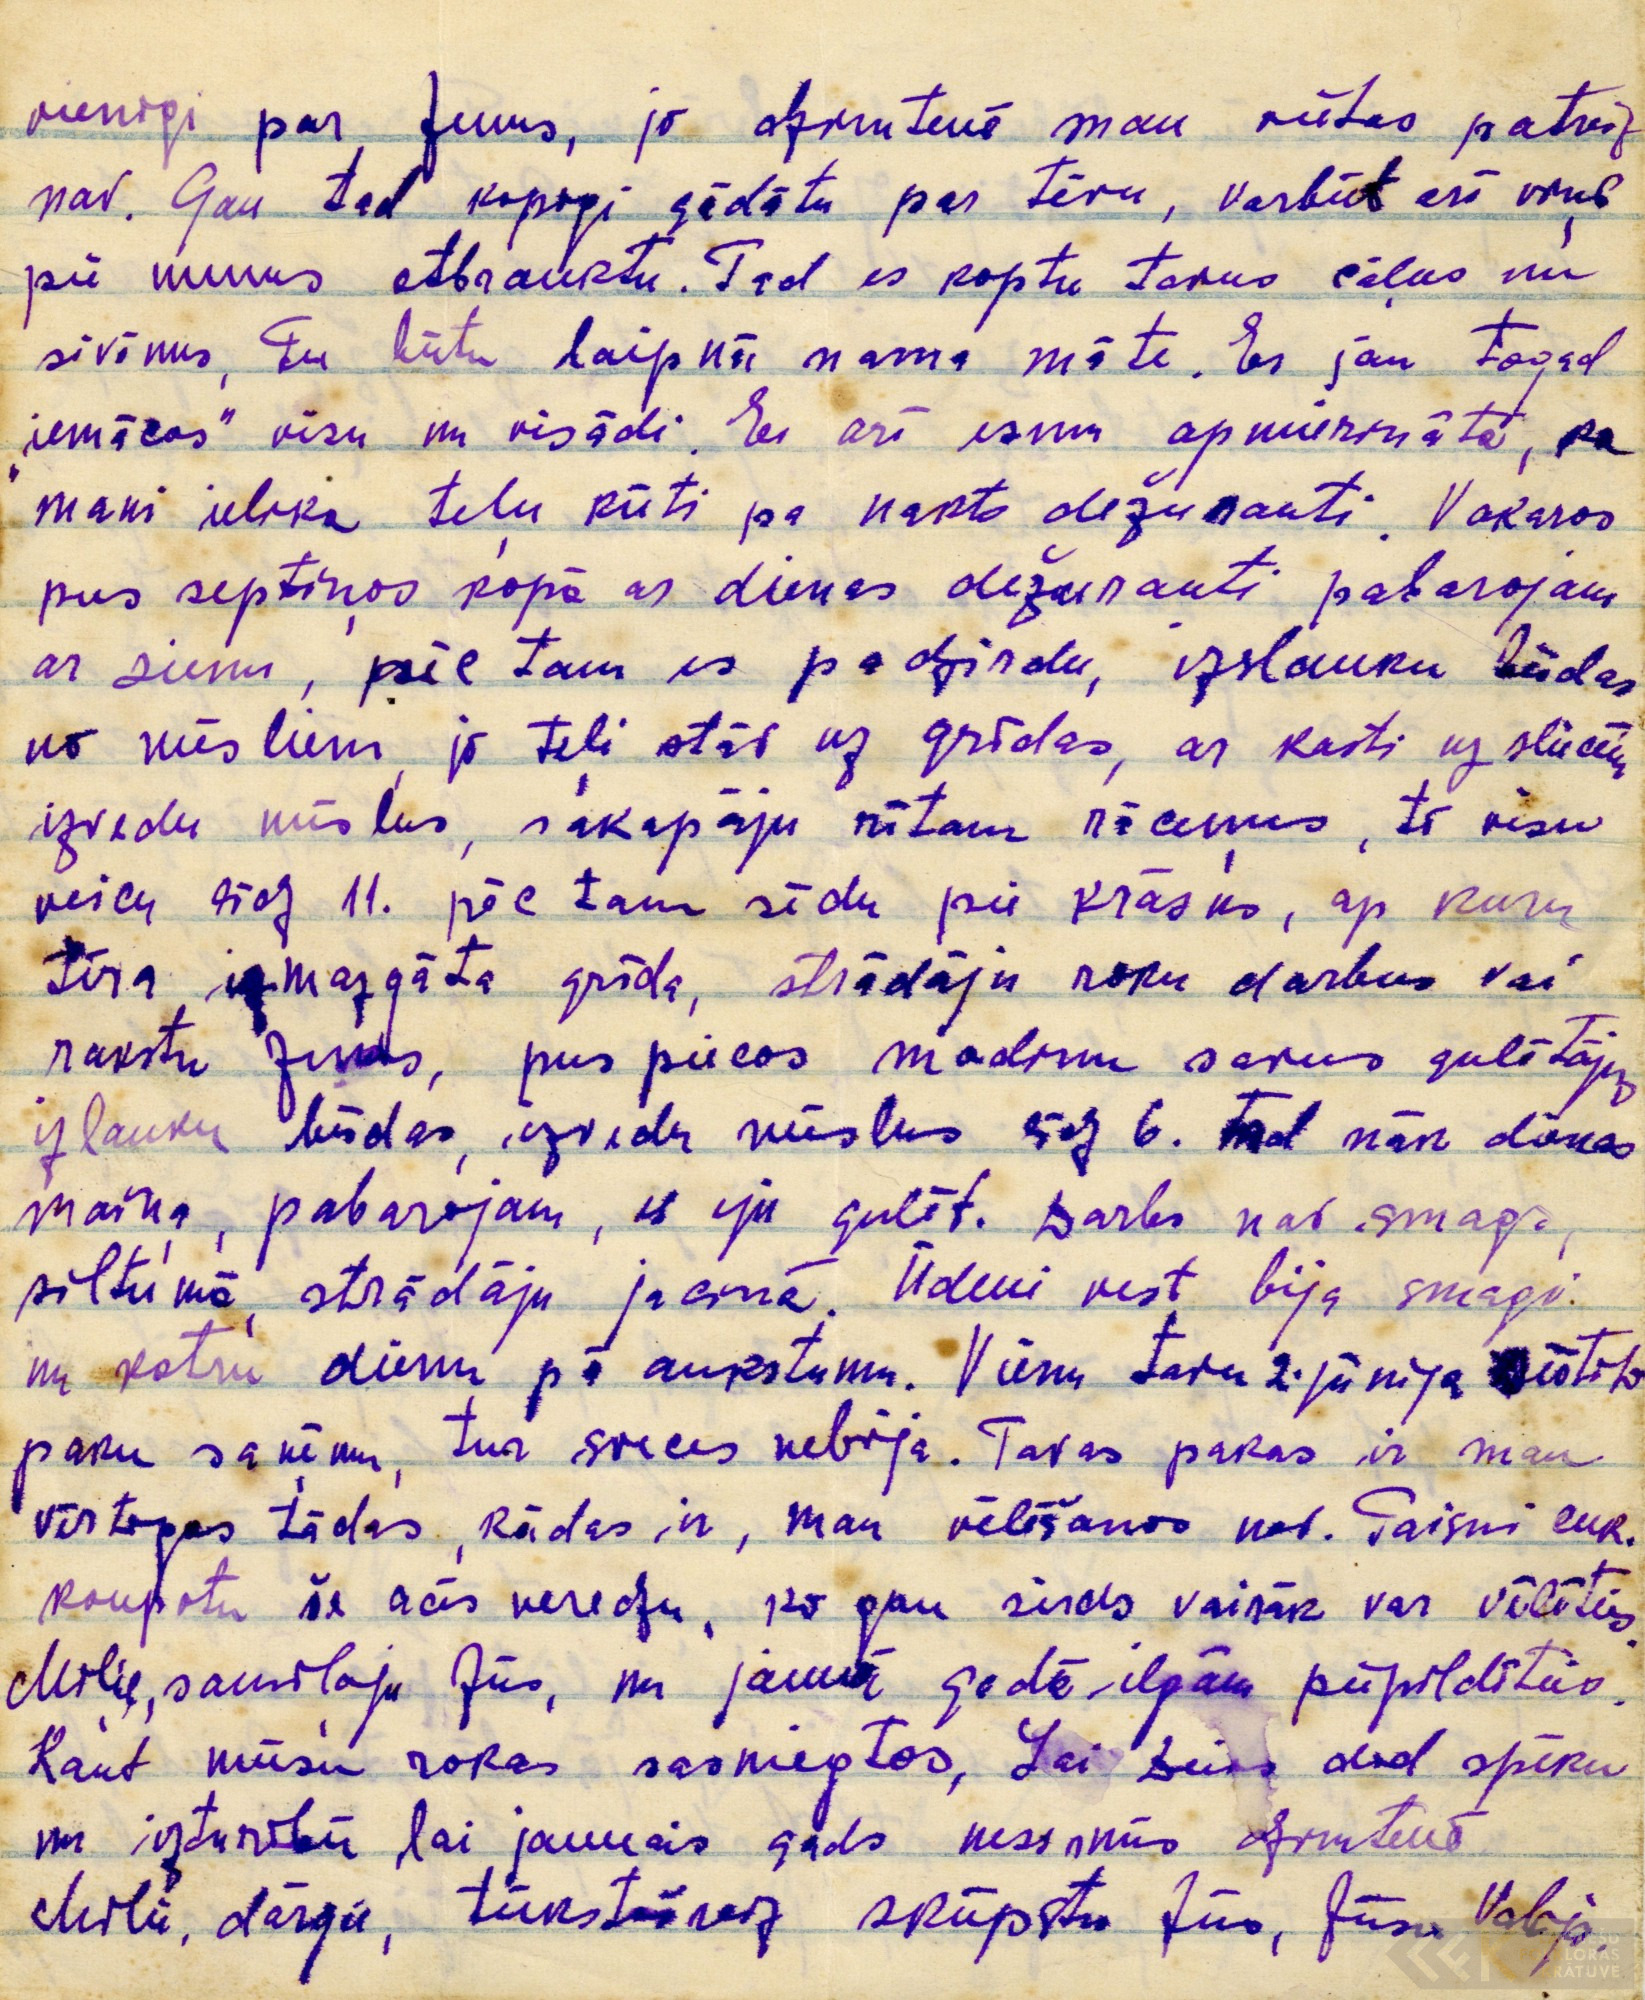 vienīgi par Jums, jo dzimtenē man vietas patreiz
nav. Gan tad kopīgi gādātu par tēvu, varbūt arī viņš
pie mums atbrauktu. Tad es koptu tavus cāļus un
sivēnus, Tu būtu laipnā nama māte. Es jau tagad
"iemācos" visu un visādi. Es arī esmu apmierināta, ka
mani ielika teļu kūtī pa nakts dežuranti. Vakaros
pus septiņos kopā ar dienas dežuranti pabarojam
ar sienu, pēc tam es padzirdu, izslauku būdas
no mēsliem, jo teļi stāv uz grīdas, ar kasti uz sliecēm
izvedu mēslus, sakapāju rītam rāceņus, to visu
veicu līdz 11. pēc tam sēdu pie krāsns, ap kuru
tīra izmazgāta grīda, strādāju roku darbus vai
rakstu Jums, pus piecos modinu savus gulētājus
izlauku būdas, izvedu mēslus līdz 6. Tad nāk dienas
maiņa, pabarojam, es eju gulēt. Darbs nav smags,
siltumā, strādāju jaciņā. Ūdeni vest bija smagi
un katru dienu pa aukstumu. Vienu tavu 2. jūnijā sūtīto
paku saņēmu, tur sveces nebija. Tavas pakas ir man
vērtīgas tādas, kādas ir, man vēlēšanos nav. Taisni cuk.
kompotu še acīs neredzu, ko gan sirds vairāk var vēlēties.
Mīļie, samīļoju Jūs, un jaunā gadā ilgām piepildīties.
Kaut mūsu rokas sasniegtos, Lai Dievs dod spēku
un izturību lai jaunais gads nes mūs dzimtenē
Mīļie, dārgie, tūkstošreiz skūpstu Jūs, Jūsu Valija.